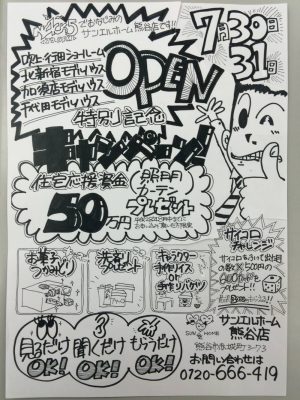 でおなじみの
サンエルホーム 熊谷店です!!
7月30日
31日
行田ショールーム
北新宿モデルハウス
加須店モデルハウス
千代田モデルハウス
OPEN
特別記念
キャンペーン!
住宅応援資金
50万円
照明
カーテン
プレゼント
サイコロ
チャレンジ
サイコロをふって出た目
の数×500円の
プレゼント!!
お菓子
つかみどり
来店
プレゼント
キャラクター
見るだけ
OK!
聞くだけ
OK!
もらうだけ
OK!
SUN HOME
サンエルホーム
熊谷店
お問い合わせは
0720-666-419